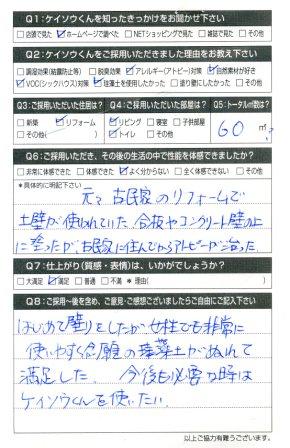 Q1:ケイソウくんを知ったきっかけをお聞かせ下さい
□店頭で見た ☑ホームページで調べた □NETショッピングで見た □雑誌で見た □その他
Q2:ケイソウくんをご採用いただきました理由をお教え下さい
□調湿効果(結露防止等) □脱臭効果 ☑アレルギー(アトピー)対策 ☑自然素材が好き
☑VOC(シックハウス)対策 ☑珪藻土を使用したかった □塗り壁にしたかった □その他
Q3:ご採用いただいた住居は?
□新築 ☑リフォーム
□その他( )
Q4:ご採用いただいた部屋は?
☑リビング □寝室 □子供部屋
☑トイレ □その他
Q5:トータル㎡数は?
60 ㎡?
Q6:ご採用いただき、その後の生活の中で性能を体感できましたか?
□非常に体感できた □体感できた ☑よく分からない □全く体感できない □その他
*具体的に明記下さい
元々古民家のリフォームで
土壁が使われていた、合板やコンクリート壁の上
に塗ったが古民家に住んでからアトピーが治った
Q7:仕上がり(質感・表情)は、いかがでしょうか?
□大満足 ☑満足 □普通 □不満 *理由( )
Q8:ご採用〜後を含め、ご意見・ご感想ございましたらご自由にご記入下さい
はじめて壁ぬりをしたが女性でも非常に
使いやすく念願の珪藻土がぬれて
満足した。 今後も必要な時は
ケイソウくんを使いたい。
以上ご協力有難うございます。